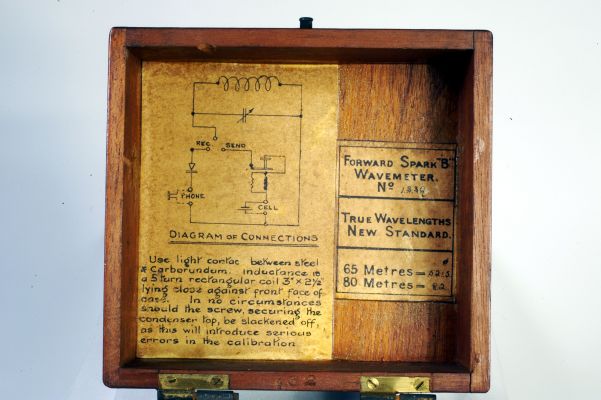 REC. SEND
PHONE
CELL
DIAGRAM OF CONNECTIONS
Use light contac between steel
& Carborundum. Inductance is
a 5 turn rectangular coil 3" × 2½"
lying close against front face of
case. In no circumstances
should the screw, securing the
condenser top, be slackened off,
as this will introduce serious
errors in the calibration
FORWARD SPARK "B"
WAVEMETER.
No
TRUE WAVELENGTHS
NEW STANDARD.
65 Metres =
80 Metres =